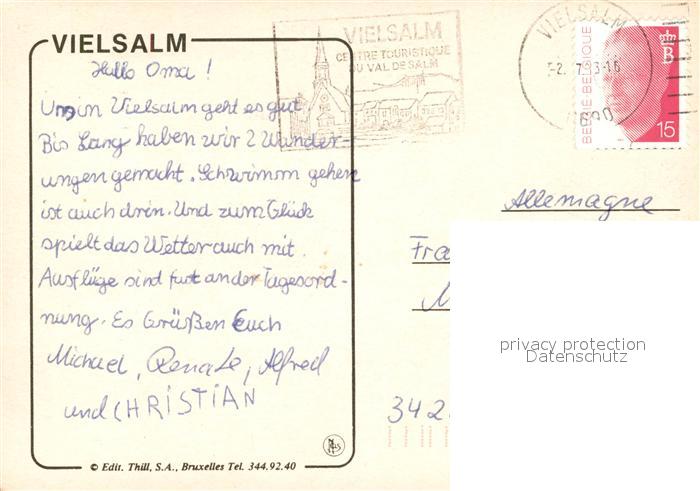 VIELSALM
Hallo Oma!
Uns in Vielsalm geht es gut
Bis Lang haben wir 2 Wander-
ungen gemacht. Schwimm gehen
ist auch drin. Und zum Glück
spielt das Wetter auch mit.
Ausflüge sind fast an der Tagesord-
nung. Es Grüßen Euch
Michael, Renate, Alfred
und CHRISTIAN
© Edit. Thill, S.A., Bruxelles Tel. 344.92.40
VIELSALM
CENTRE TOURISTIQUE
DU VAL DE SALM
VIELSALM
6690
BELGIË-BELGIQUE
B
15
Allemagne
Fra
342
privacy protection
Datenschutz